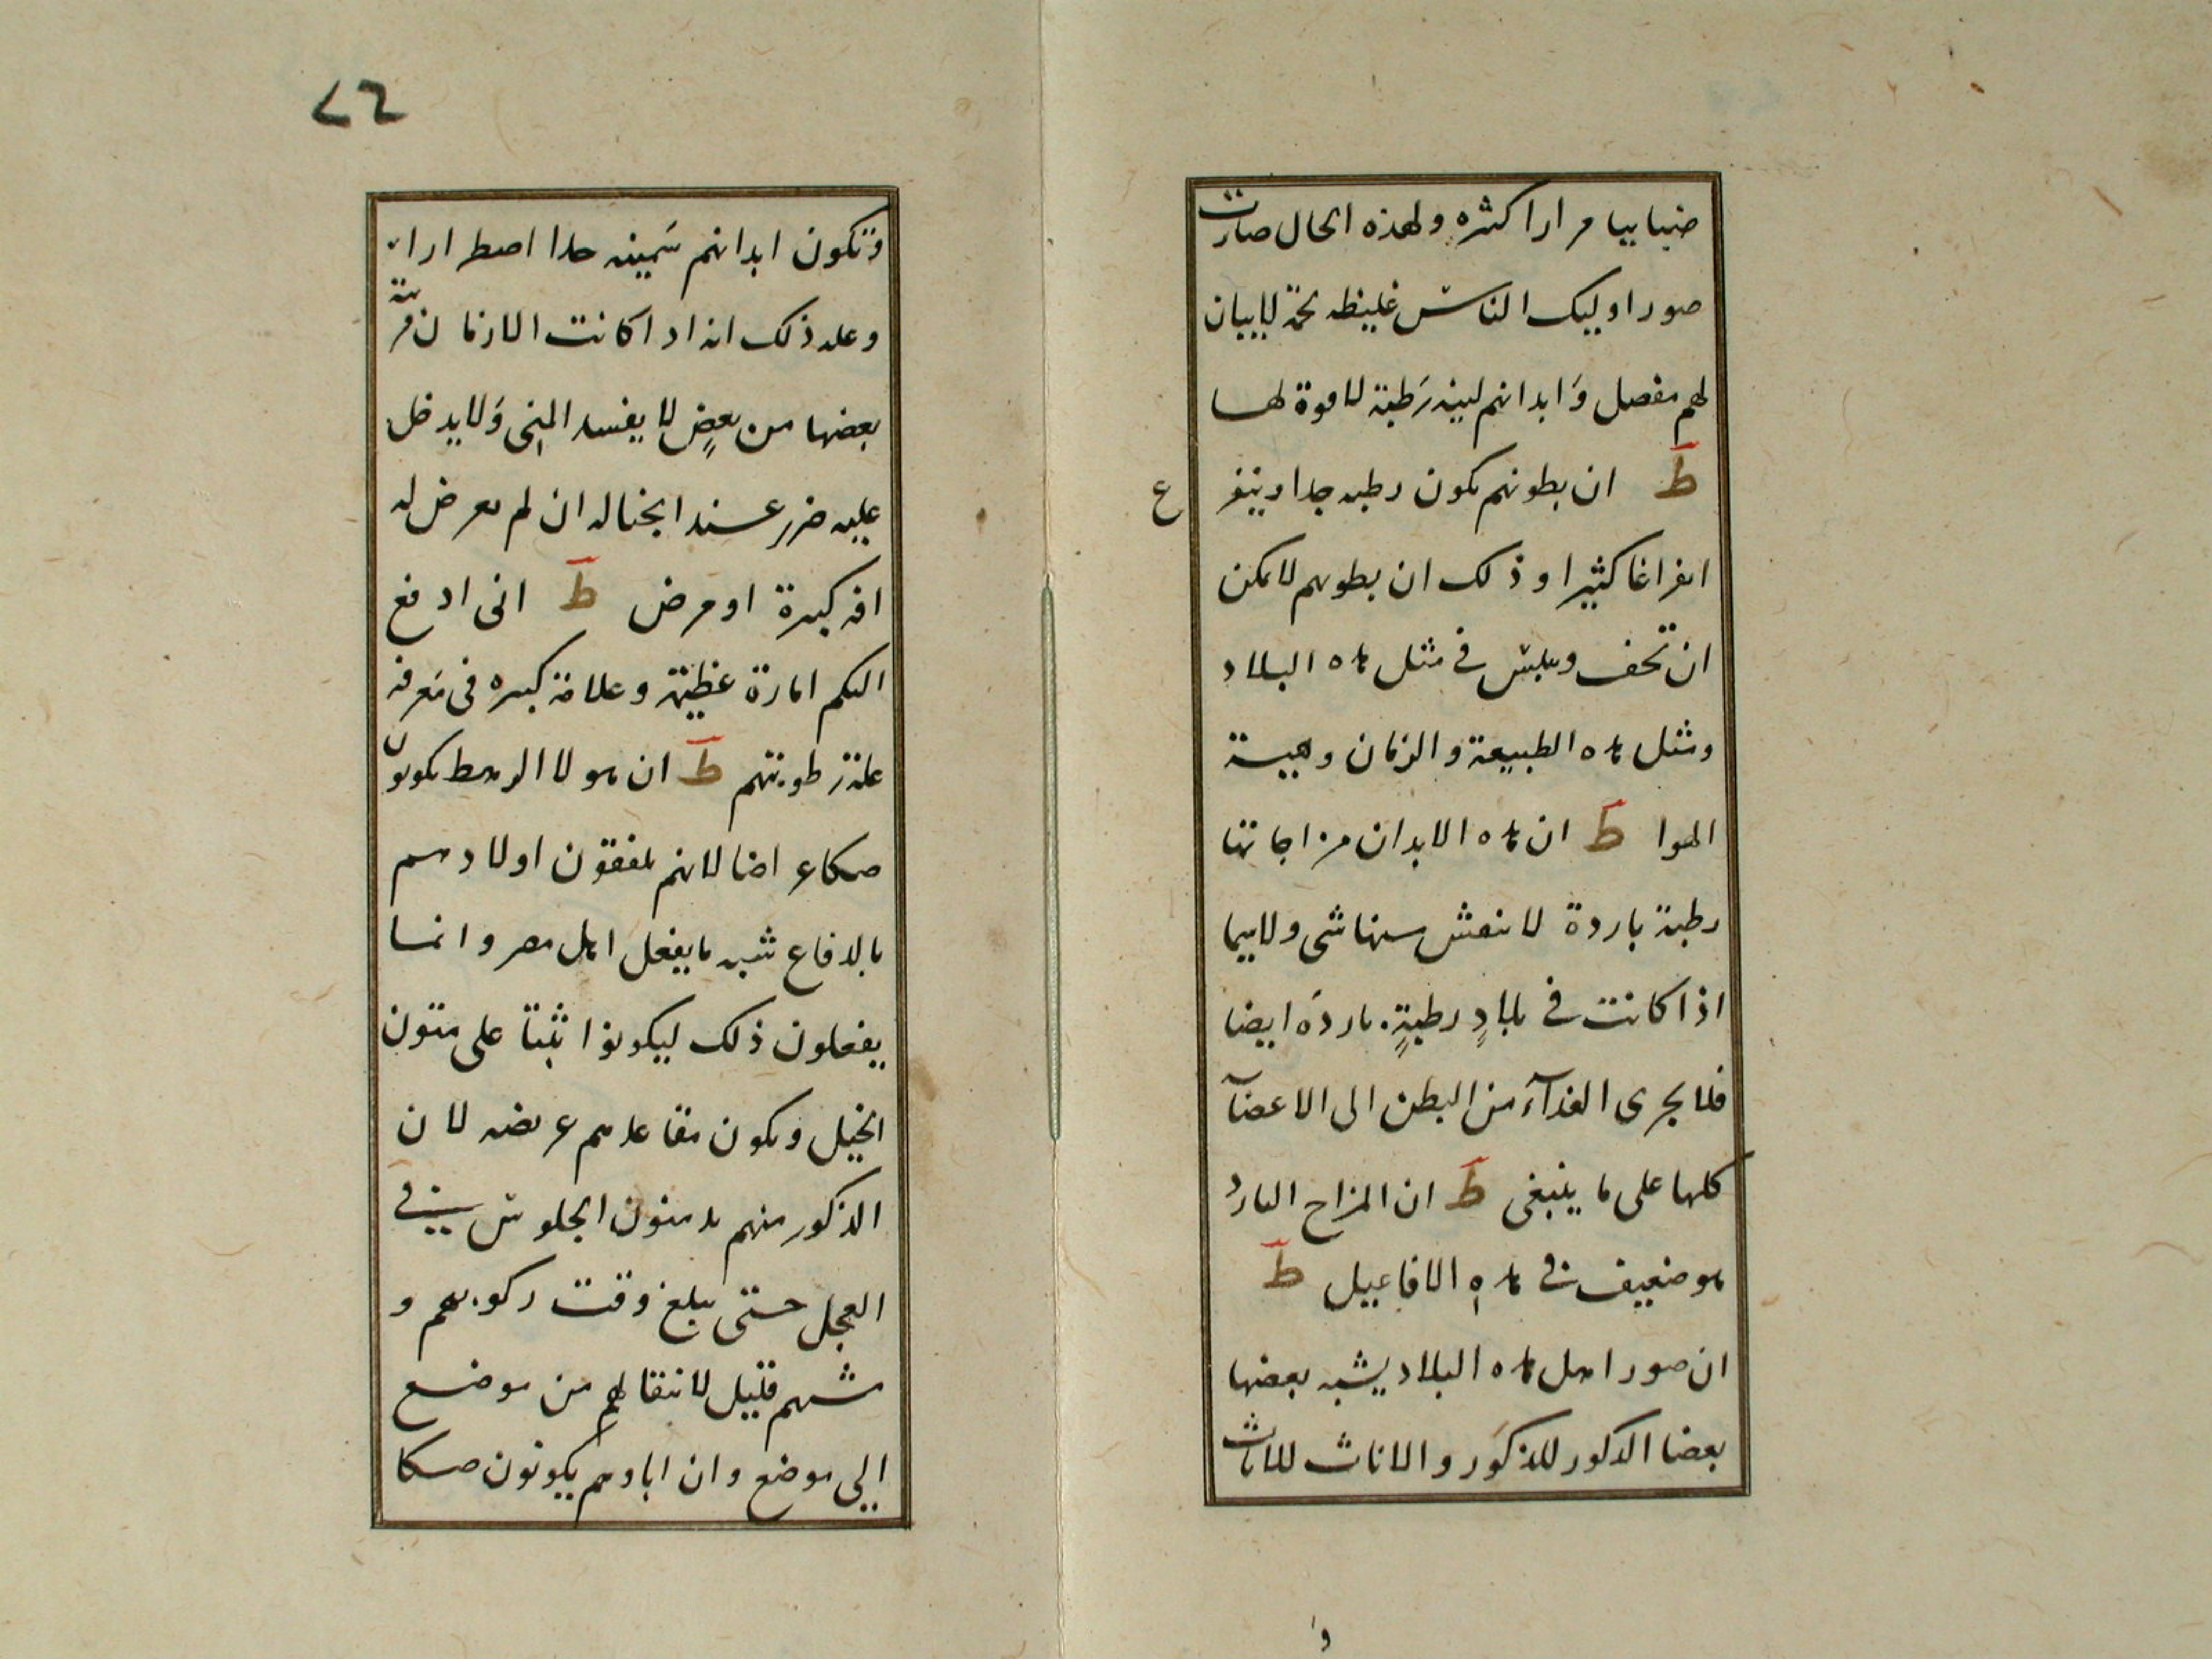 ضبابيا مرارا كثره ولهذه الحال صارت
صور اوليك الناس غليظه لحمة لايبان
لهم مفصل وَابدانهم لينه رَطبة لا قوة لها
ط ان بطونهم تكون رطبه جدا ويتفر
ع
انفراغا كثيرا وذلك ان بطونهم لا يمكن
ان تجف ويبس في مثل هذه البلاد
ومثل هذه الطبيعة والزمان وهيئة
الهوا ط ان هذه الابدان مزاجاتها
رطبة باردة لا تنفش منها شي ولاسيما
اذا كانت في بلادٍ رطبةٍ باردَه ايضا
فلا يجرى الغذآء من البطن الى الاعضآ
كلها على ما ينبغي ط ان المزاج البارد
هو ضعيف في هذه الافاعيل ط
ان صور اهل هذه البلاد يشبه بعضها
بعضا الذكور للذكَور والاناث للاناث
وا
٧٦
وَتكون ابدانهم سَمينه جدا اضطرارا
وعله ذلك انه اذا كانت الازمان قريبة
بعضها من بعضٍ لا يفسد المني وَلا يدخل
عليه ضرر عند انجناله ان لم يعرض له
افه كبيرة او مرض ط اني ادفع
اليكم امارة عظيمة وعلامة كبيره في مَعرفة
علة رطوبتهم ط ان هولا الرهط يكونون
صكاع ايضا لانهم يلفقون اولادهم
بالدفاع شبه ما يفعل اهل مصر وانما
يفعلون ذلك ليكونوا ثبتا على متون
الخيل وتكون مقاعدهم عريضه لان
الذكور منهم يدمنون الجلوس في
العجل حتى يبلغ وقت ركوبهم و
مشيهم قليل لانتقالهم من موضع
الي موضع وان اباوهم يكونون صكا